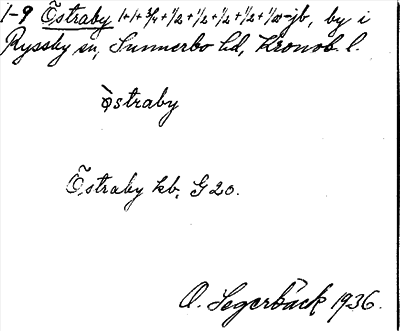 1-9 Östraby 1+1+3/4+1/2+1/2+1/2+1/2+1/2=jb, by i
Ryssby sn, Sunnerbo hd, Kronob. l.
östraby
Östraby kb, G 20.
O. Segerbäck 1936.